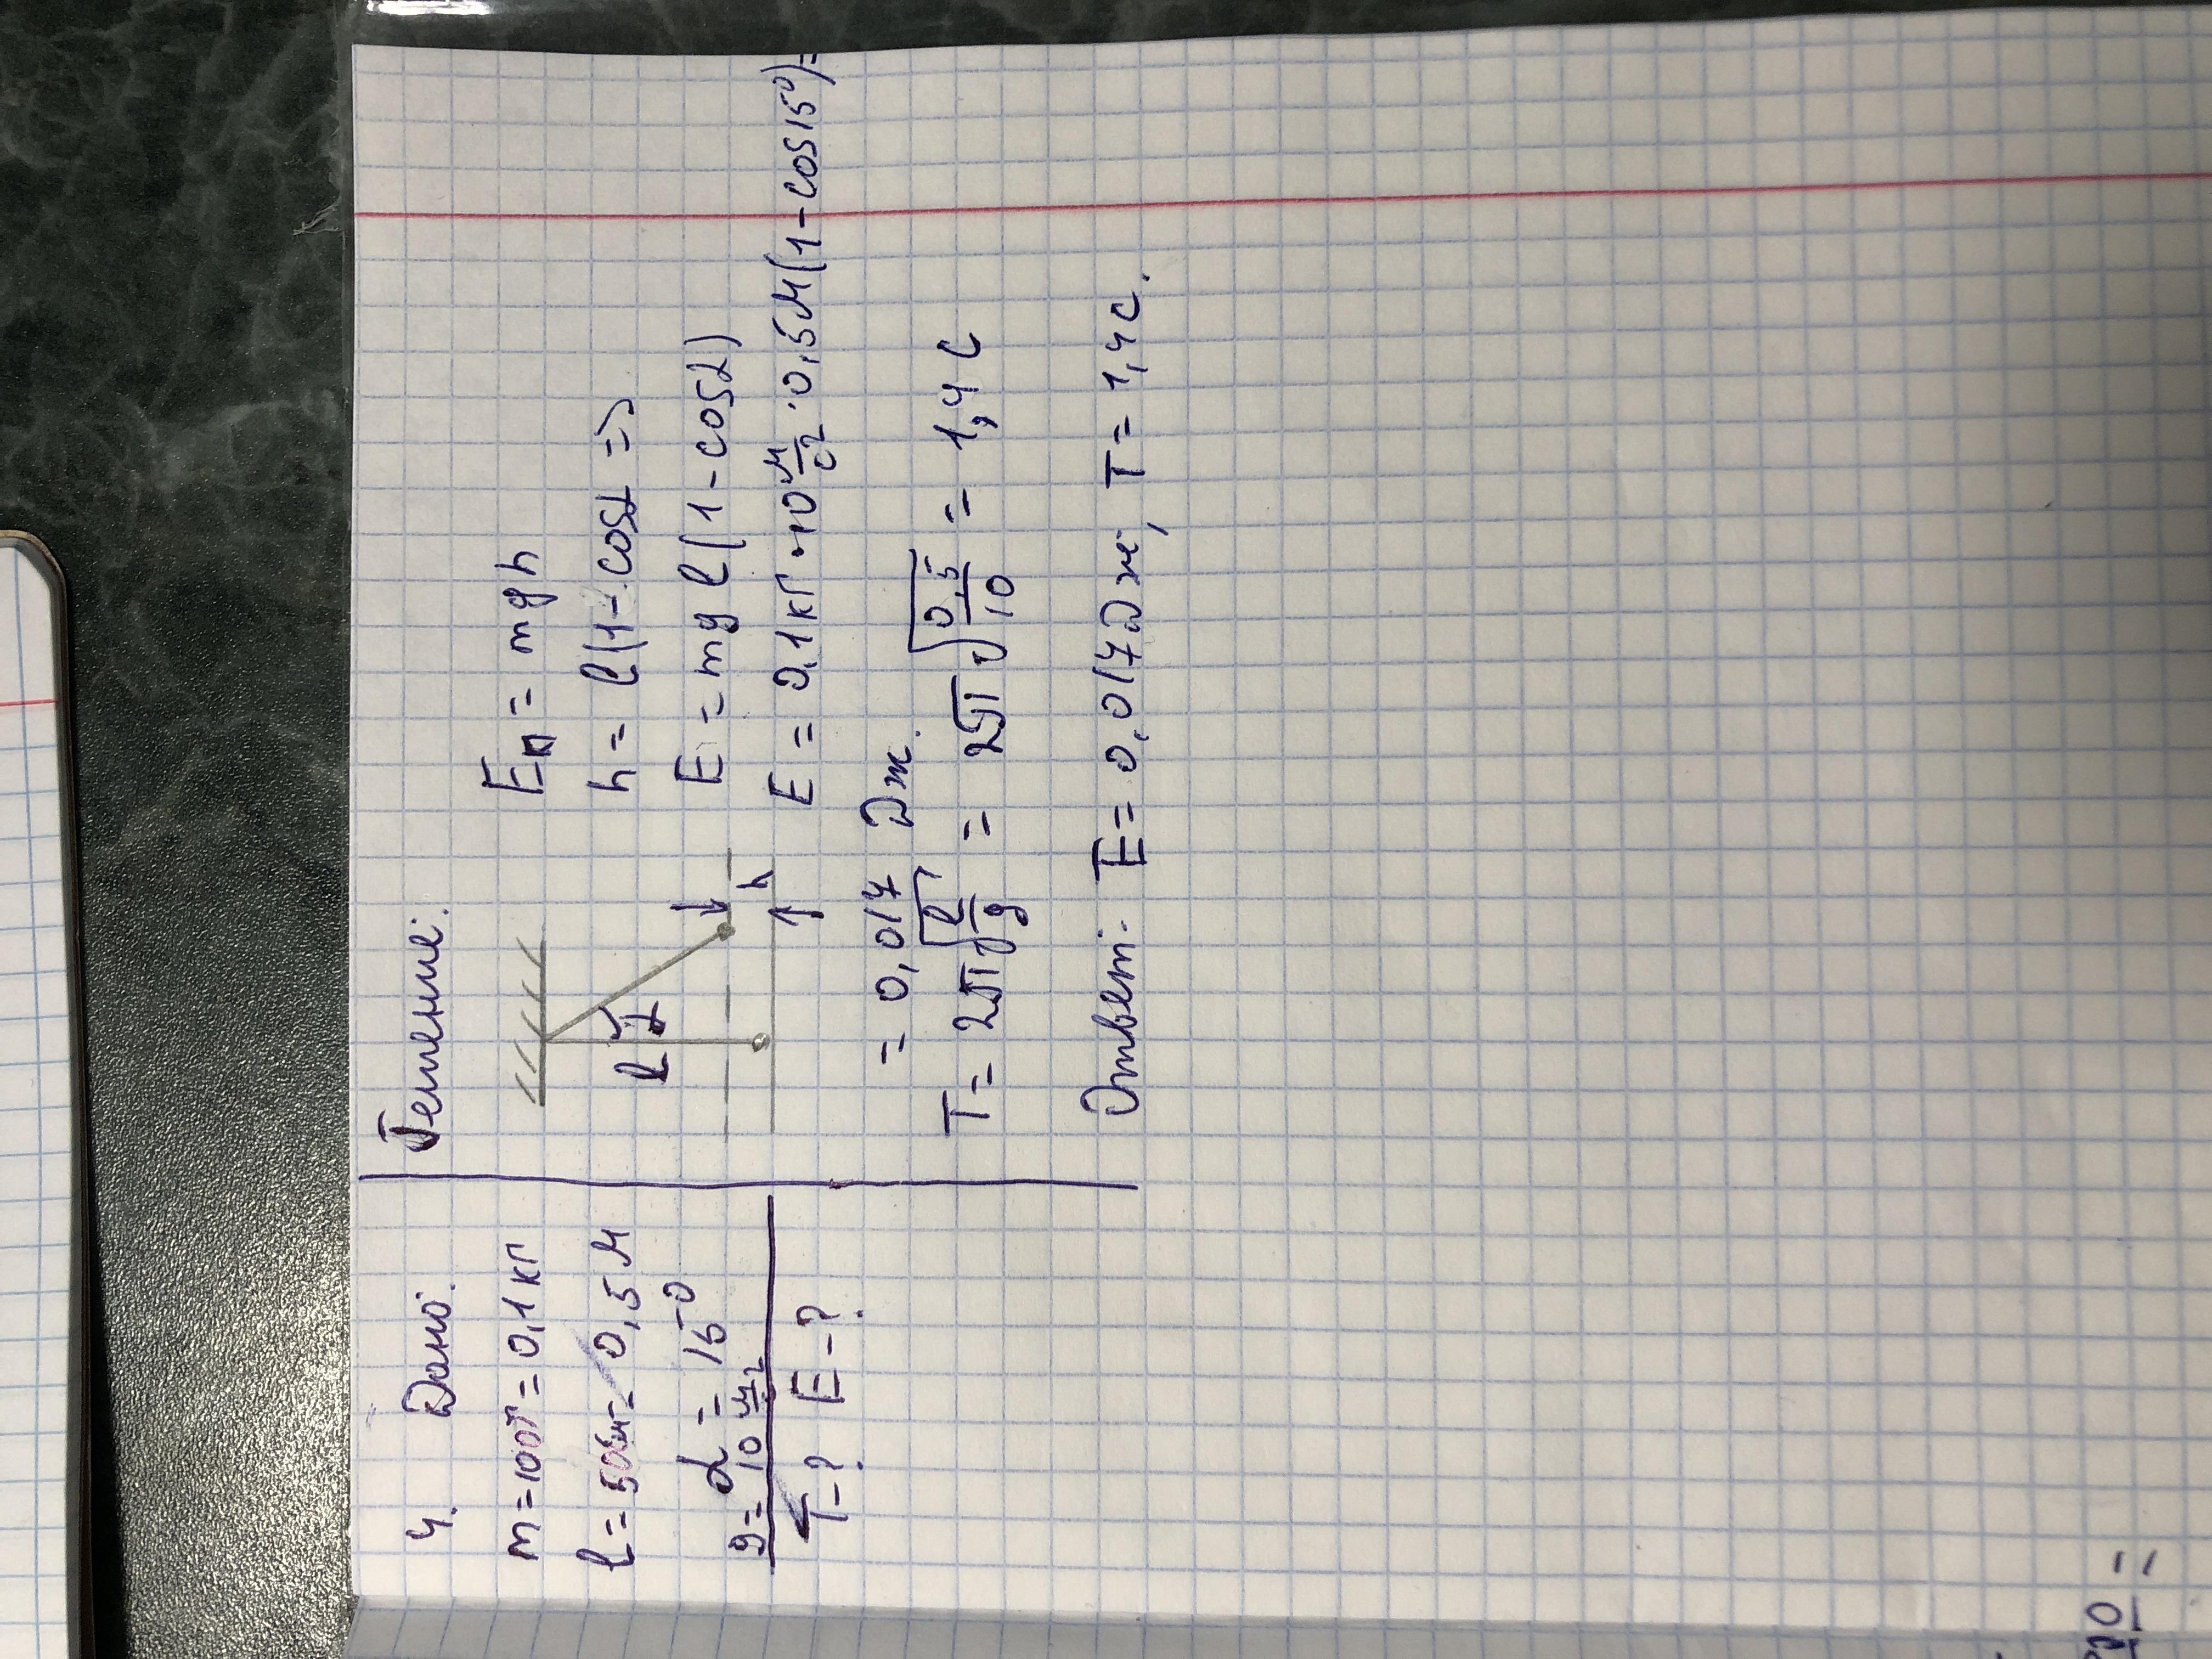 4. Дано:
m=100г=0,1кг
l=50см=0,5м
α=15°
g=10 м/с²
T-? E-?
Решение:
l α
h
Eп=mgh
h=l(1-cosα=>
E=mgl(1-cosα)
E=0,1кг·10 м/с²·0,5м(1-cos15°)=
=0,017 Дж.
T=2π√(l/g)=2π√(0,5/10)=1,4с
Ответ: E=0,017Дж; T=1,4с.